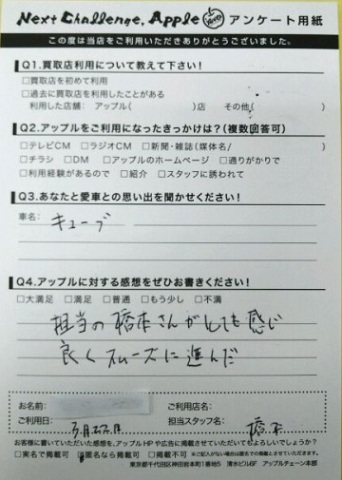 Next Challenge, Apple アンケート用紙
この度は当店をご利用いただきありがとうございました。
Q1.買取店利用について教えて下さい!
□買取店を初めて利用
□過去に買取店を利用したことがある
利用した店舗: アップル( )店 その他( )
Q2.アップルをご利用になったきっかけは?(複数回答可)
□テレビCM □ラジオCM □新聞・雑誌(媒体名/ )
□チラシ □DM □アップルのホームページ □通りがかりで
□利用経験があるので □紹介 □スタッフに誘われて
Q3.あなたと愛車との思い出を聞かせください!
車名: キューブ
Q4.アップルに対する感想をぜひお書きください!
□大満足 □満足 □普通 □もう少し □不満
担当の橋本さんがとても感じ
良くスムーズに進んだ
お名前: ご利用店名:
ご利用日: 3月22日 担当スタッフ名: 橋本
お客様に書いていただいた感想を、アップルHPや広告に掲載させていただいてもよろしいでしょうか?
□実名で掲載可 匿名なら掲載可 □掲載不可 ※ご記入がない場合は匿名での掲載とさせていただきます。
東京都千代田区神田岩本町1番地5 清水ビル6F アップルチェーン本部